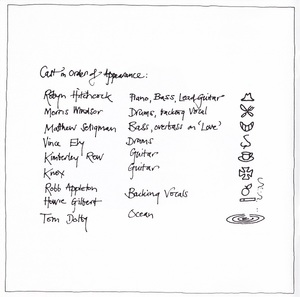 Cast in order of Appearance:
Robyn Hitchcock Piano, Bass, Lead Guitar
Morris Windsor Drums, backing Vocal
Matthew Seligman Bass, overbass on 'Love'
Vince Ely Drums
Kimberley Rew Guitar
Knox Guitar
Robb Appleton
Howie Gilbert Backing Vocals
Tom Dolby Ocean